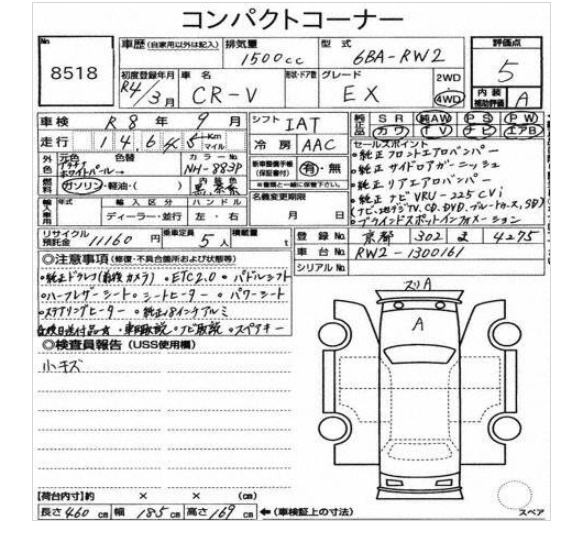 コンパクトコーナー
No 8518
車歴 (自家用以外は記入) 排気量 1500cc 型式 6BA-RW2 評価点 5
初度登録年月 R4/3月 車名 CR-V 形状・ドア数 グレード EX 2WD 4WD 内装補助評価 A
車検 R8年9月 シフト IAT 純正品 SR 純AW PS PW
カワ TV ナビ エアB
走行 14,645 Km マイル 冷房 AAC セールスポイント
外色 元色 プラチナホワイトパール 色替 カラーNo. NH-883P 内装色
燃料 ガソリン・軽油・( ) 新車整備手帳(保証書付) 有・無
※書類と一緒に保管下さい。
・純正フロントエアロバンパー
・純正サイドロアガーニッシュ
・純正リアエアロバンパー
・純正ナビ VRU-225CVi
(ナビ、地デジTV、CD、DVD、ブルートゥース、SD)
・ブラインドスポットインフォメーション
輸入車 年式 輸入区分 ディーラー・並行 ハンドル 左・右 名義変更期限 月 日
リサイクル預託金 11160円 乗車定員 5人 積載量 t 登録No. 京都 302 ま 4275
車台No. RW2-1300161
シリアルNo.
◎注意事項 (修復・不具合箇所および状態等)
・純正ドラレコ(前後カメラ) ・ETC2.0 ・パドルシフト
・ハーフレザーシート ・シートヒーター ・パワーシート
・ステアリングヒーター ・純正18インチアルミ
・ナビ取説 ・スペアキー
◎検査員報告 (USS使用欄)
小キズ
スリA
A
【荷台内寸】約 × × (cm)
長さ 460 cm 幅 185 cm 高さ 169 cm ←(車検証上の寸法)
スペア